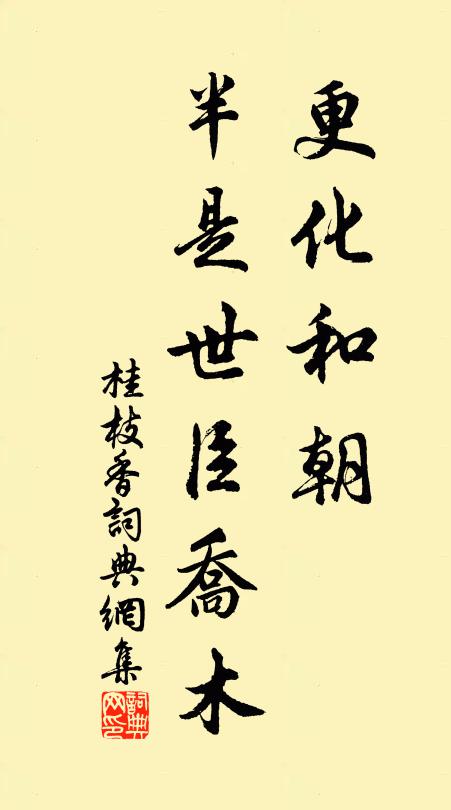 更化和朝
半是世臣喬木
桂枝香詞典網集
詞典网印